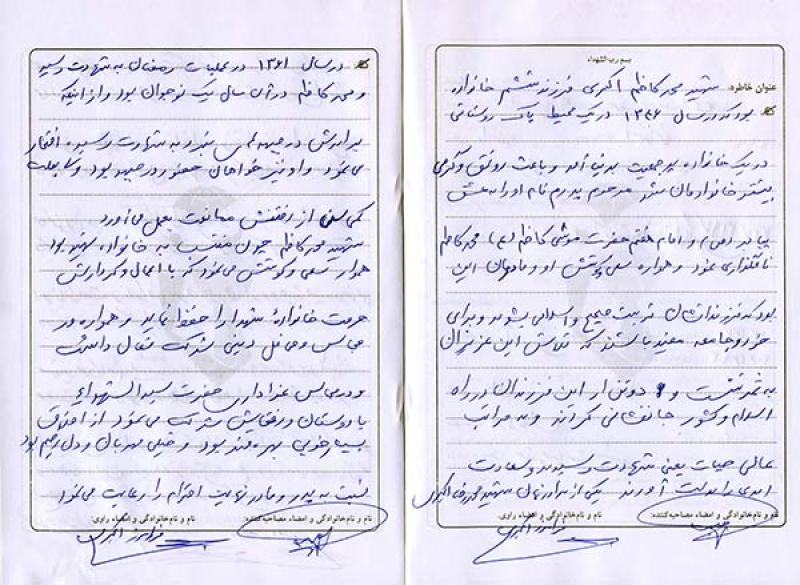 بسم رب الشهداء
عنوان خاطره: شهید محمد کاظم اکبری فرزند ششم خانواده
بود که در سال ۱۳۴۶ در یک محیط پاک روستائی
در یک خانواده پر جمعیت بدنیا آمد و باعث رونق و گرمی
بیشتر خانوادمان شد مرحوم پدرم نام او را به عشق
پیامبر (ص) و امام هفتم حضرت موسی کاظم (ع) محمد کاظم
نامگذاری نمود و همواره سعی و کوشش او و مادرمان این
بود که فرزندانشان تربیت صحیح و اسلامی بشوند و برای
خود و جامعه مفید باشند که تلاش این عزیزان
به ثمر نشست و دو تن از این فرزندان در راه
اسلام و کشور جانفشانی کردند و به مراتب
عالی حیات یعنی شهادت رسیدند و سعادت
ابدی را بدست آوردند یکی از برادرانمان شهید محمد رضا اکبری
نام و نام خانوادگی و امضاء مصاحبه کننده:
نام و نام خانوادگی و امضاء راوی:
اکبری
در سال ۱۳۶۱ در عملیات رمضان به شهادت رسید
و محمد کاظم در آن سال یک نوجوان بود و از اینکه
برادرش در جبهه به شهادت رسیده افتخار
می نمود و او نیز خواهان حضور در جبهه بود ولی بعلت
کمی سن از رفتنش ممانعت بعمل می آورد
شهید محمد کاظم چون منتسب به خانواده شهید بود
همواره سعی و کوشش می نمود که با اعمال و کردارش
حرمت خانواده شهدا را حفظ نماید و همواره در
مجالس و محافل دینی شرکت فعال داشت
و در مجالس عزاداری حضرت سید الشهداء
با دوستان و رفقایش شرکت می نمود از اخلاق
بسیار خوبی بهره مند بود و خیلی مهربان و دل رحم بود
نسبت به پدر و مادر نهایت احترام را رعایت می نمود
نام و نام خانوادگی و امضاء مصاحبه کننده:
نام و نام خانوادگی و امضاء راوی:
اکبری